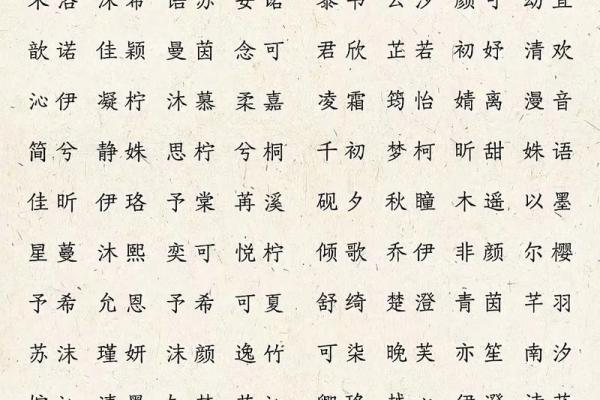 歆诺 佳颖 曼茵 念可 君欣 芷若 初妤 清欢
沁伊 凝柠 沐慕 柔嘉 凌霜 筠怡 婧离 漫音
简兮 静姝 思柠 兮桐 千初 梦柯 昕甜 姝语
佳昕 伊珞 予棠 苒溪 砚夕 秋瞳 木遥 以墨
星蔓 沐熙 奕可 悦柠 倾歌 乔伊 非颜 尔樱
予希 允恩 予希 可夏 舒绮 楚澄 青茵 芊羽
苏沫 瑾妍 沫颜 逸竹 可柒 晚芙 亦笙 南汐